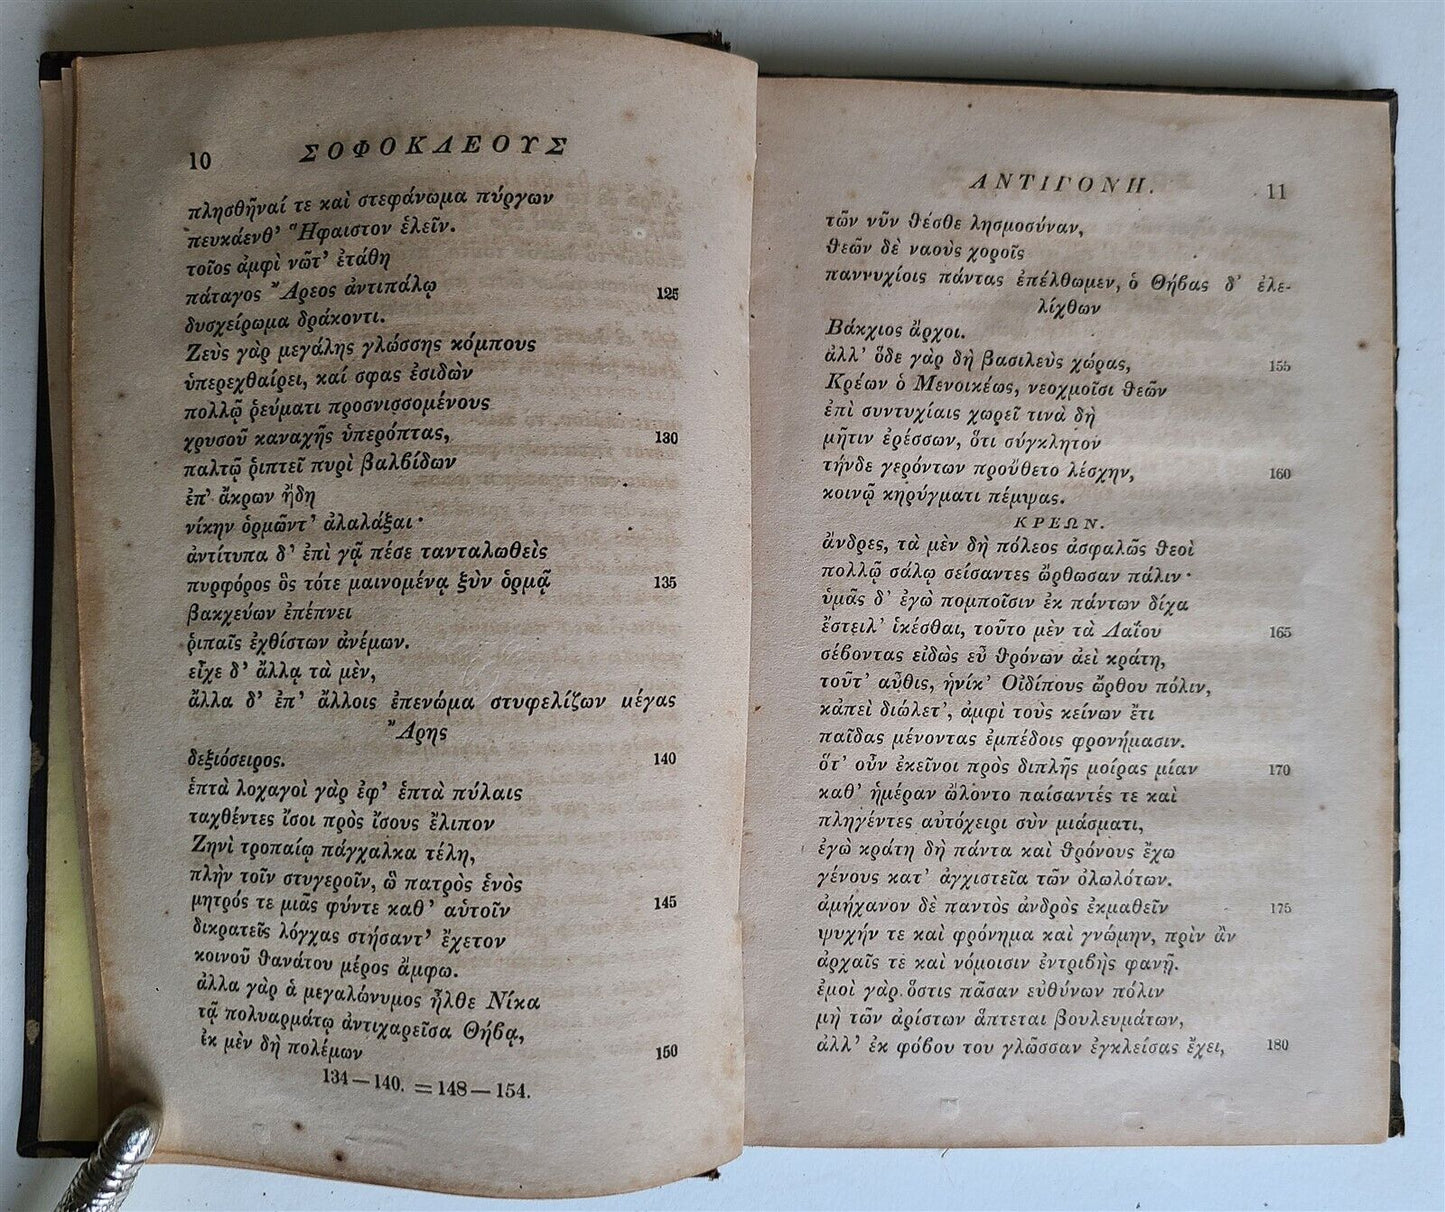 10 ΣΟΦΟΚΛΕΟΥΣ
πλησθῆναί τε καὶ στεφάνωμα πύργων
πευκάενθ' Ἥφαιστον ἑλεῖν.
τοῖος ἀμφὶ νῶτ' ἐτάθη
πάταγος Ἄρεος ἀντιπάλῳ 125
δυσχείρωμα δράκοντι.
Ζεὺς γὰρ μεγάλης γλώσσης κόμπους
ὑπερεχθαίρει, καί σφας ἐσιδὼν
πολλῷ ῥεύματι προσνισσομένους
χρυσοῦ καναχῆς ὑπερόπτας, 130
παλτῷ ῥιπτεῖ πυρὶ βαλβίδων
ἐπ' ἄκρων ἤδη
νίκην ὁρμῶντ' ἀλαλάξαι·
ἀντίτυπα δ' ἐπὶ γᾷ πέσε τανταλωθεὶς
πυρφόρος ὃς τότε μαινομένᾳ ξὺν ὁρμᾷ 135
βακχεύων ἐπέπνει
ῥιπαῖς ἐχθίστων ἀνέμων.
εἶχε δ' ἄλλᾳ τὰ μὲν,
ἄλλα δ' ἐπ' ἄλλοις ἐπενώμα στυφελίζων μέγας
Ἄρης
δεξιόσειρος. 140
ἑπτὰ λοχαγοὶ γὰρ ἐφ' ἑπτὰ πύλαις
ταχθέντες ἴσοι πρὸς ἴσους ἔλιπον
Ζηνὶ τροπαίῳ πάγχαλκα τέλη,
πλὴν τοῖν στυγεροῖν, ὣ πατρὸς ἑνὸς
μητρός τε μιᾶς φύντε καθ' αὑτοῖν 145
δικρατεῖς λόγχας στήσαντ' ἔχετον
κοινοῦ θανάτου μέρος ἄμφω.
ἀλλα γὰρ ἁ μεγαλώνυμος ἦλθε Νίκα
τᾷ πολυαρμάτῳ ἀντιχαρεῖσα Θήβᾳ,
ἐκ μὲν δὴ πολέμων 150
134—140. = 148—154.
ΑΝΤΙΓΟΝΗ. 11
τῶν νῦν θέσθε λησμοσύναν,
θεῶν δὲ ναοὺς χοροῖς
παννυχίοις πάντας ἐπέλθωμεν, ὁ Θήβας δ' ἐλε-
λίχθων
Βάκχιος ἄρχοι.
ἀλλ' ὅδε γὰρ δὴ βασιλεὺς χώρας, 155
Κρέων ὁ Μενοικέως, νεοχμοῖσι θεῶν
ἐπὶ συντυχίαις χωρεῖ τινὰ δὴ
μῆτιν ἐρέσσων, ὅτι σύγκλητον
τήνδε γερόντων προὔθετο λέσχην, 160
κοινῷ κηρύγματι πέμψας.
ΚΡΕΩΝ.
ἄνδρες, τὰ μὲν δὴ πόλεος ἀσφαλῶς θεοὶ
πολλῷ σάλῳ σείσαντες ὤρθωσαν πάλιν·
ὑμᾶς δ' ἐγὼ πομποῖσιν ἐκ πάντων δίχα
ἔστειλ' ἱκέσθαι, τοῦτο μὲν τὰ Λαΐου 165
σέβοντας εἰδὼς εὖ θρόνων ἀεὶ κράτη,
τοῦτ' αὖθις, ἡνίκ' Οἰδίπους ὤρθου πόλιν,
κἀπεὶ διώλετ', ἀμφὶ τοὺς κείνων ἔτι
παῖδας μένοντας ἐμπέδοις φρονήμασιν.
ὅτ' οὖν ἐκεῖνοι πρὸς διπλῆς μοίρας μίαν 170
καθ' ἡμέραν ὤλοντο παίσαντές τε καὶ
πληγέντες αὐτόχειρι σὺν μιάσματι,
ἐγὼ κράτη δὴ πάντα καὶ θρόνους ἔχω
γένους κατ' ἀγχιστεῖα τῶν ὀλωλότων.
ἀμήχανον δὲ παντὸς ἀνδρὸς ἐκμαθεῖν 175
ψυχήν τε καὶ φρόνημα καὶ γνώμην, πρὶν ἂν
ἀρχαῖς τε καὶ νόμοισιν ἐντριβὴς φανῇ.
ἐμοὶ γὰρ ὅστις πᾶσαν εὐθύνων πόλιν
μὴ τῶν ἀρίστων ἅπτεται βουλευμάτων,
ἀλλ' ἐκ φόβου του γλῶσσαν ἐγκλείσας ἔχει, 180